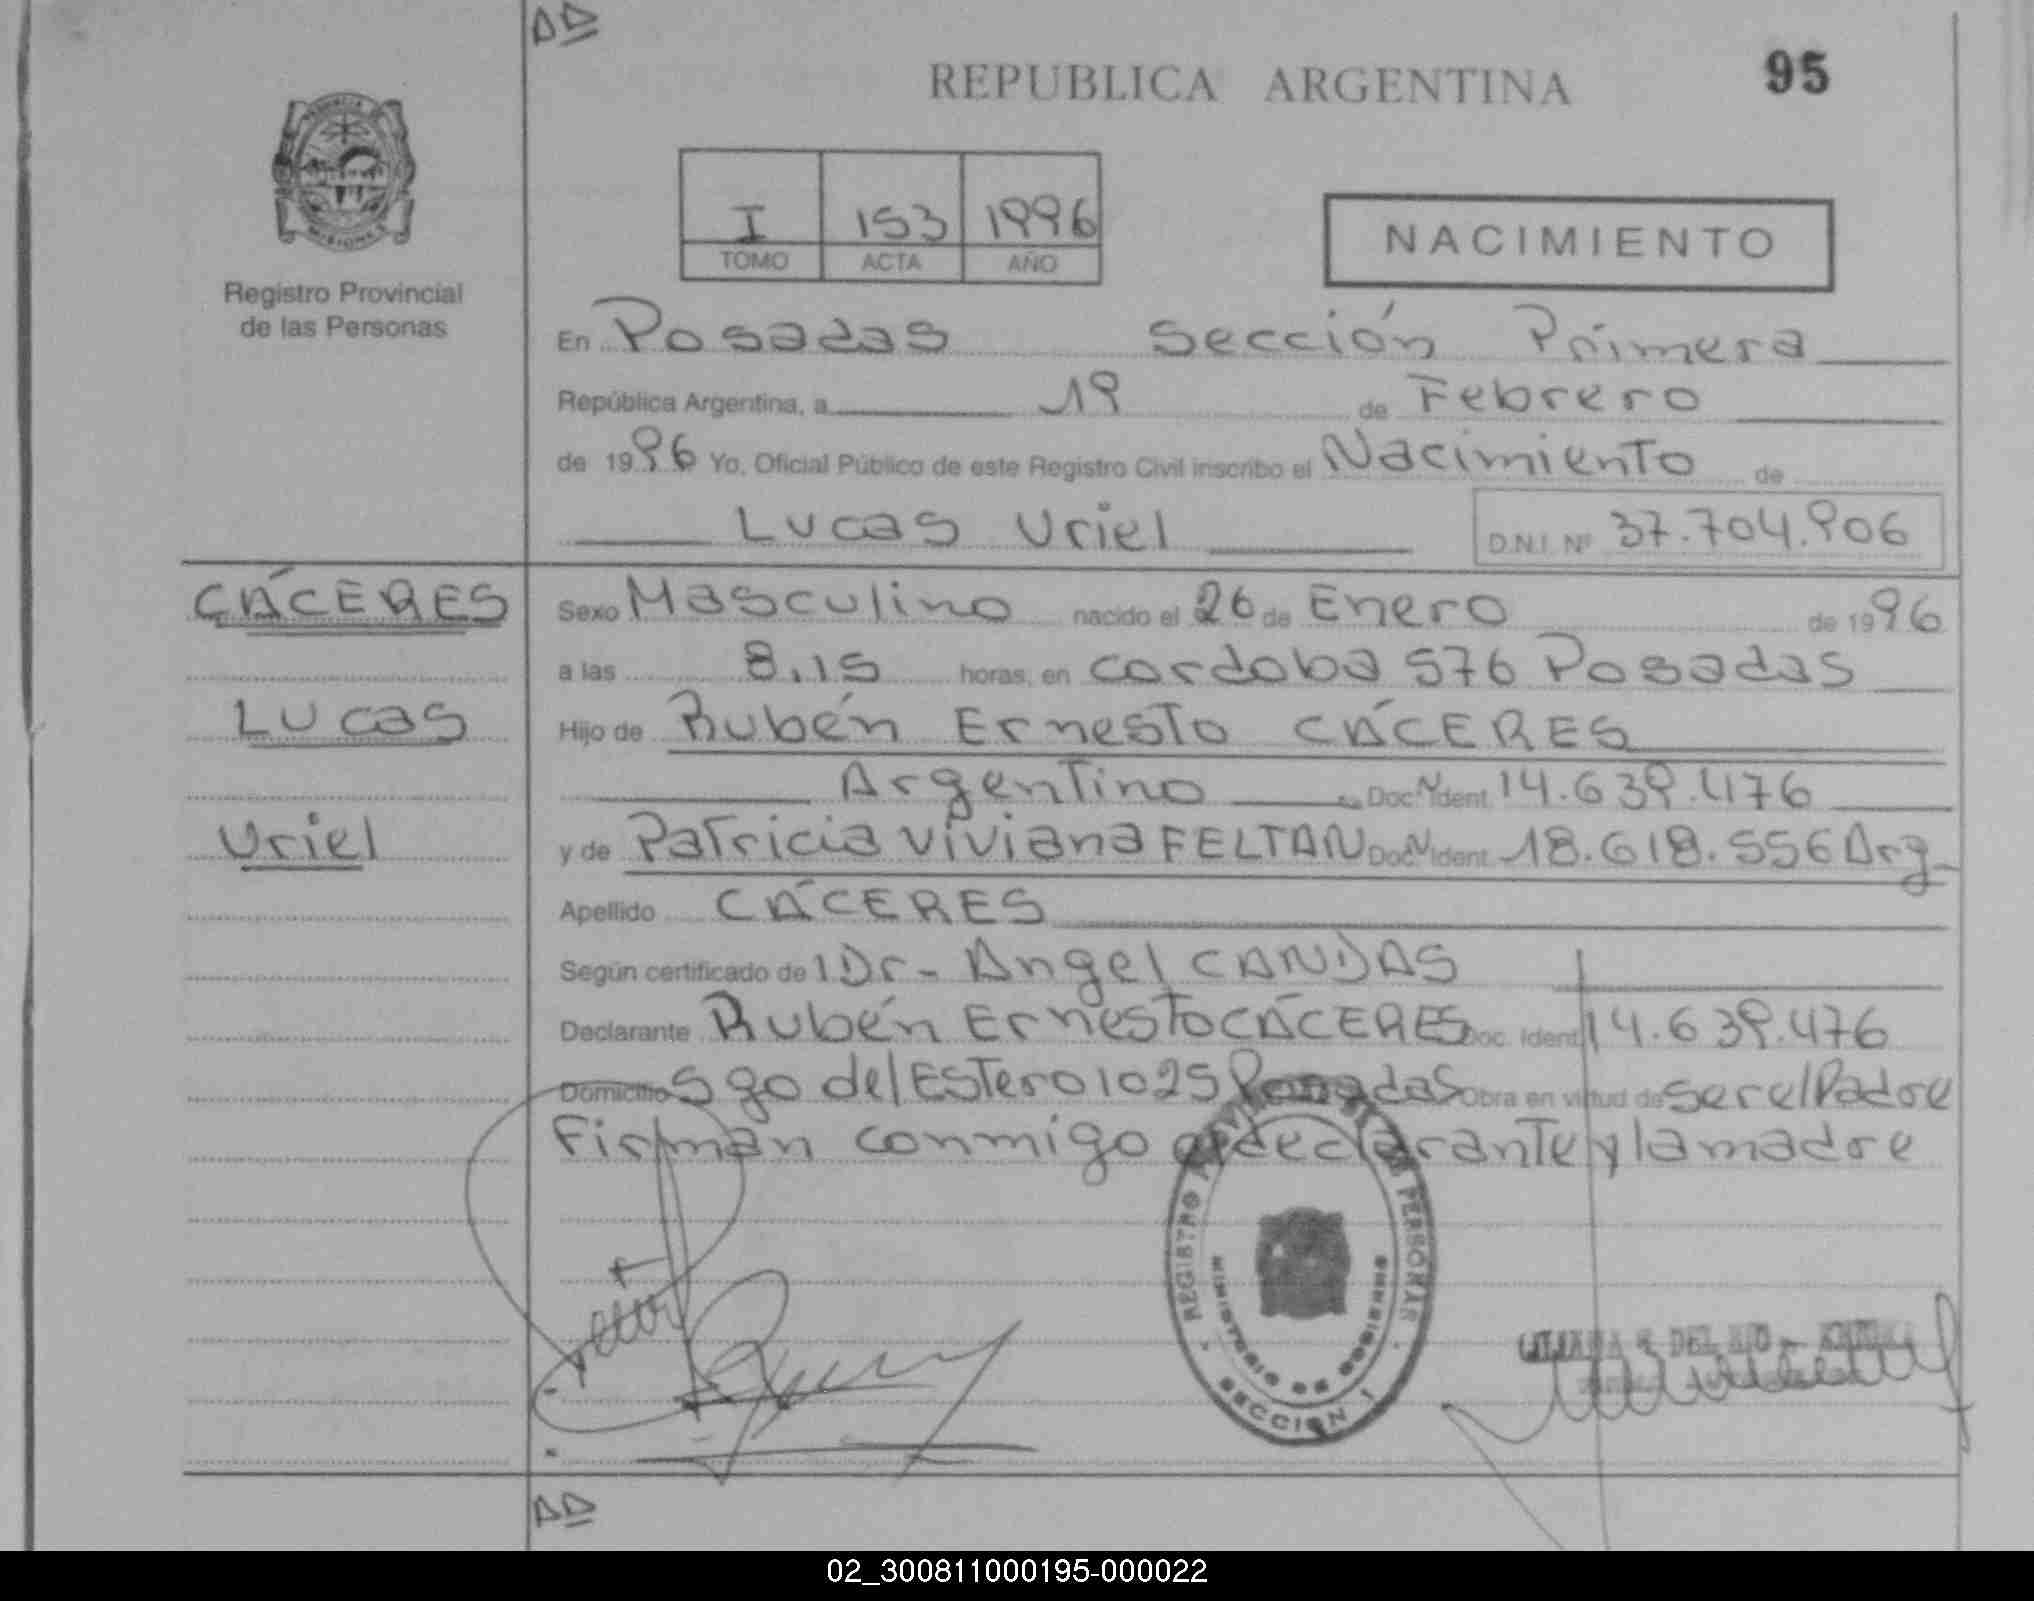 DD
REPUBLICA ARGENTINA 95
PROVINCIA
MISIONES
Registro Provincial
de las Personas
I 153 1996
TOMO ACTA AÑO
NACIMIENTO
En Posadas Sección Primera
República Argentina, a 19 de Febrero
de 1996 Yo, Oficial Público de este Registro Civil inscribo el Nacimiento de
Lucas Uriel D.N.I. Nº 37.704.906
CÁCERES
Lucas
Uriel
Sexo Masculino nacido el 26 de Enero de 1996
a las 8.15 horas, en Cordoba 576 Posadas
Hijo de Rubén Ernesto CÁCERES
Argentino Doc. Nº Ident. 14.639.476
y de Patricia Viviana FELTAN Doc. Nº Ident. 18.618.556 Arg-
Apellido CÁCERES
Según certificado de Dr- Angel CANDAS
Declarante Rubén Ernesto CÁCERES Doc. Ident 14.639.476
Domicilio Sgo del Estero 1025 Posadas Obra en virtud de ser el Padre
Firman conmigo el declarante y la madre
REGISTRO PROVINCIAL DE LAS PERSONAS
MINISTERIO DE GOBIERNO
SECCION 1
DEL
DD
02_300811000195-000022